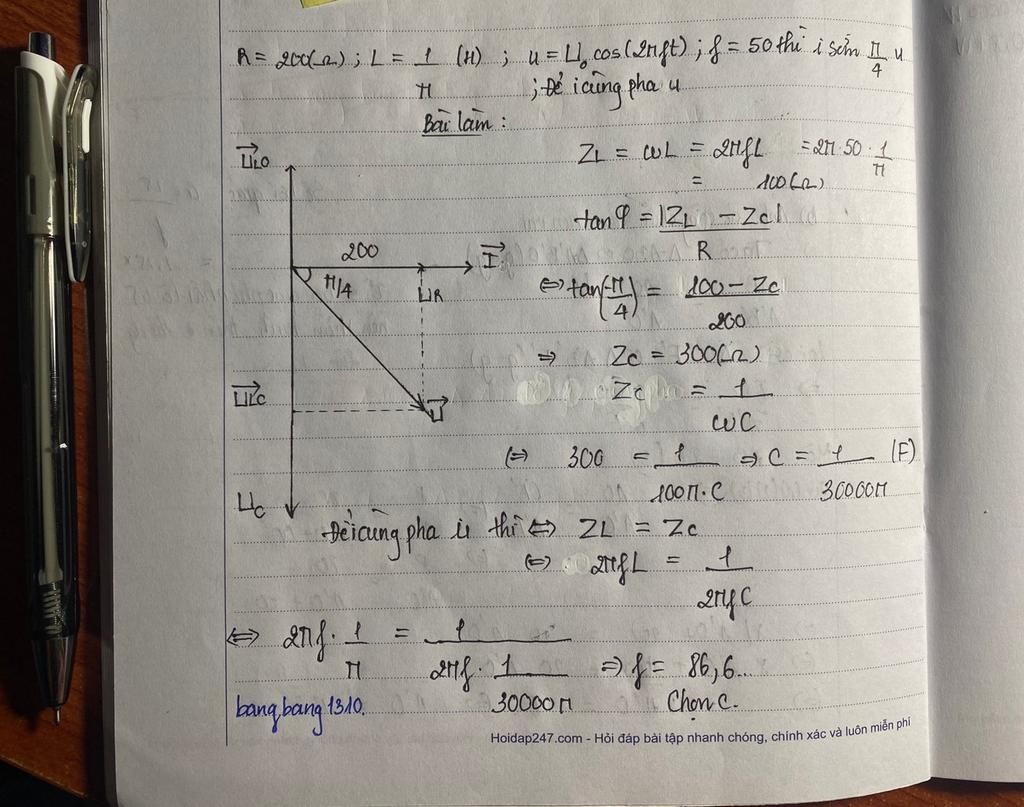 R = 200(Ω) ; L = 1/π (H) ; u = U₀ cos(2πft) ; f = 50 thì i sớm π/4 u
; Để i cùng pha u
Bài làm :
U⃗L0
ZL = ωL = 2πfL = 2π·50·1/π
= 100(Ω)
tanφ = |ZL - ZC|/R
200
I⃗
π/4
UR
⇔ tan(-π/4) = (100 - ZC)/200
⇒ ZC = 300(Ω)
U⃗LC
U⃗
ZC = 1/ωC
⇔ 300 = 1/(100π·C) ⇒ C = 1/30000π (F)
UC
Để i cùng pha u thì ⇔ ZL = ZC
⇔ 2πfL = 1/2πfC
⇔ 2πf·1/π = 1/(2πf·1/30000π) ⇒ f = 86,6...
bangbang1310.
Chọn C.
Hoidap247.com - Hỏi đáp bài tập nhanh chóng, chính xác và luôn miễn phí